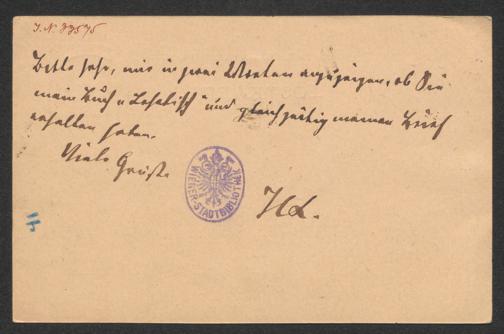 J. N. 33575
Bitte sehr, mir in zwei Worten anzuzeigen, ob Sie
mein Buch u. und gleichzeitig meinen Brief
erhalten haben.
Viele Grüße
WIENER-STADTBIBLIOTHEK